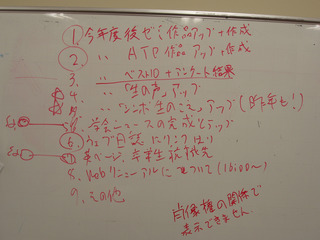 1. 今年度後ゼミ作品アップ+作成
2. 〃 ATP作品アップ+作成
3. 〃 ベスト10+アンケート結果
4. 〃 「生の声」アップ
5. 〃 アップ(昨年も!)
学会ニュースの完成とアップ
6. ウェブ日誌にリンクはり
7. 卒業生
8. Webリニューアルについて(16:00〜)
9. その他
肖像権の関係で
表示できません